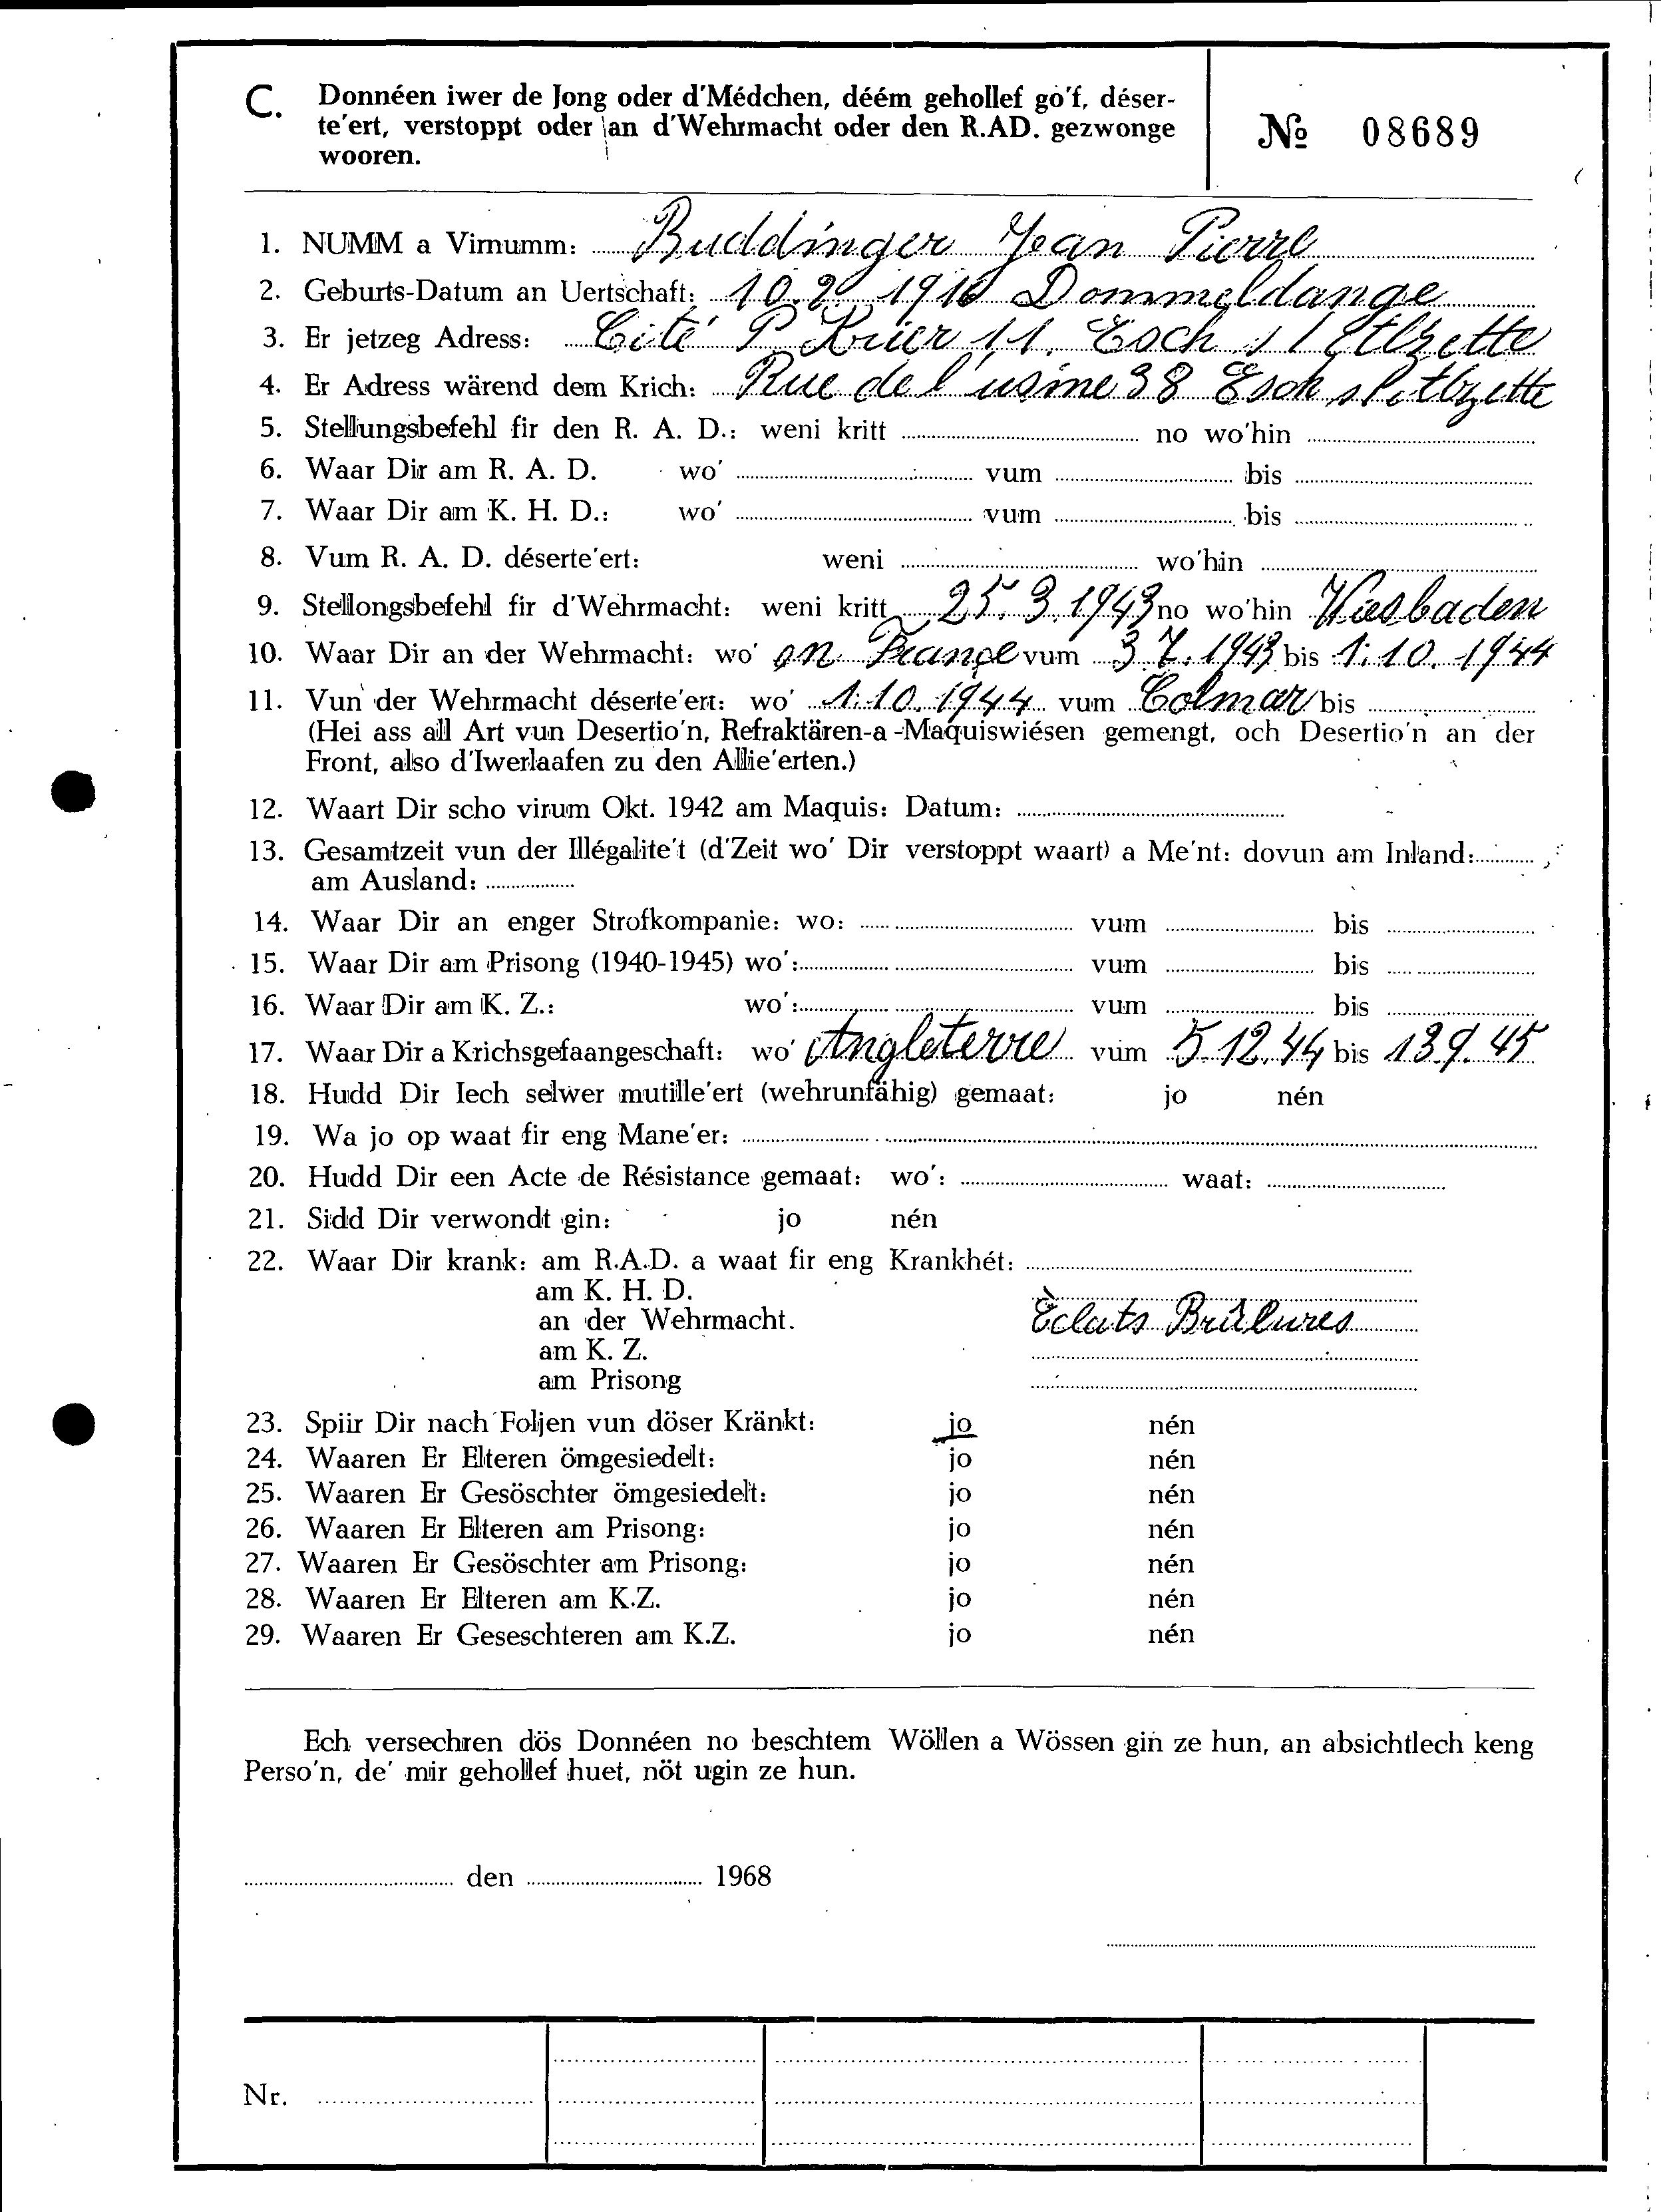 C. Donnéen iwer de Jong oder d'Médchen, déém gehollef go'f, déser-
te'ert, verstoppt oder an d'Wehrmacht oder den R.AD. gezwonge
wooren.
№ 08689
1. NUMM a Virnumm: Buddinger Jean Pierre
2. Geburts-Datum an Uertschaft: 10.2. Dommeldange
3. Er jetzeg Adress: Cité P Krier 11. Esch s/ Alzette
4. Er Adress wärend dem Krich: Rue de l'usine 38 Esch s/ Alzette
5. Stellungsbefehl fir den R. A. D.: weni kritt no wo'hin
6. Waar Dir am R. A. D. wo' vum bis
7. Waar Dir am K. H. D.: wo' vum bis
8. Vum R. A. D. déserte'ert: weni wo'hin
9. Stellongsbefehl fir d'Wehrmacht: weni kritt 25.3.1943 no wo'hin Wiesbaden
10. Waar Dir an der Wehrmacht: wo' en France vum 3.7.1943 bis 1.10.1944
11. Vun der Wehrmacht déserte'ert: wo' 1.10.1944 vum Colmar bis
(Hei ass all Art vun Desertio'n, Refraktären-a-Maquiswiésen gemengt, och Desertio'n an der
Front, also d'Iwerlaafen zu den Allie'erten.)
12. Waart Dir scho virum Okt. 1942 am Maquis: Datum:
13. Gesamtzeit vun der Illégalite't (d'Zeit wo' Dir verstoppt waart) a Me'nt: dovun am Inland:
am Ausland:
14. Waar Dir an enger Strofkompanie: wo: vum bis
15. Waar Dir am Prisong (1940-1945) wo': vum bis
16. Waar Dir am K. Z.: wo': vum bis
17. Waar Dir a Krichsgefaangeschaft: wo' Angleterre vum 5.12.44 bis 13.9.45
18. Hudd Dir Iech selwer mutille'ert (wehrunfähig) gemaat: jo nén
19. Wa jo op waat fir eng Mane'er:
20. Hudd Dir een Acte de Résistance gemaat: wo': waat:
21. Sidd Dir verwondt gin: jo nén
22. Waar Dir krank: am R.A.D. a waat fir eng Krankhét:
am K. H. D.
an der Wehrmacht. Èclats Brûlures
am K. Z.
am Prisong
23. Spiir Dir nach Foljen vun döser Kränkt: jo nén
24. Waaren Er Elteren ömgesiedelt: jo nén
25. Waaren Er Gesöschter ömgesiedelt: jo nén
26. Waaren Er Elteren am Prisong: jo nén
27. Waaren Er Gesöschter am Prisong: jo nén
28. Waaren Er Elteren am K.Z. jo nén
29. Waaren Er Geseschteren am K.Z. jo nén
Ech versechren dös Donnéen no beschtem Wöllen a Wössen gin ze hun, an absichtlech keng
Perso'n, de' mir gehollef huet, nöt ugin ze hun.
den 1968
Nr.